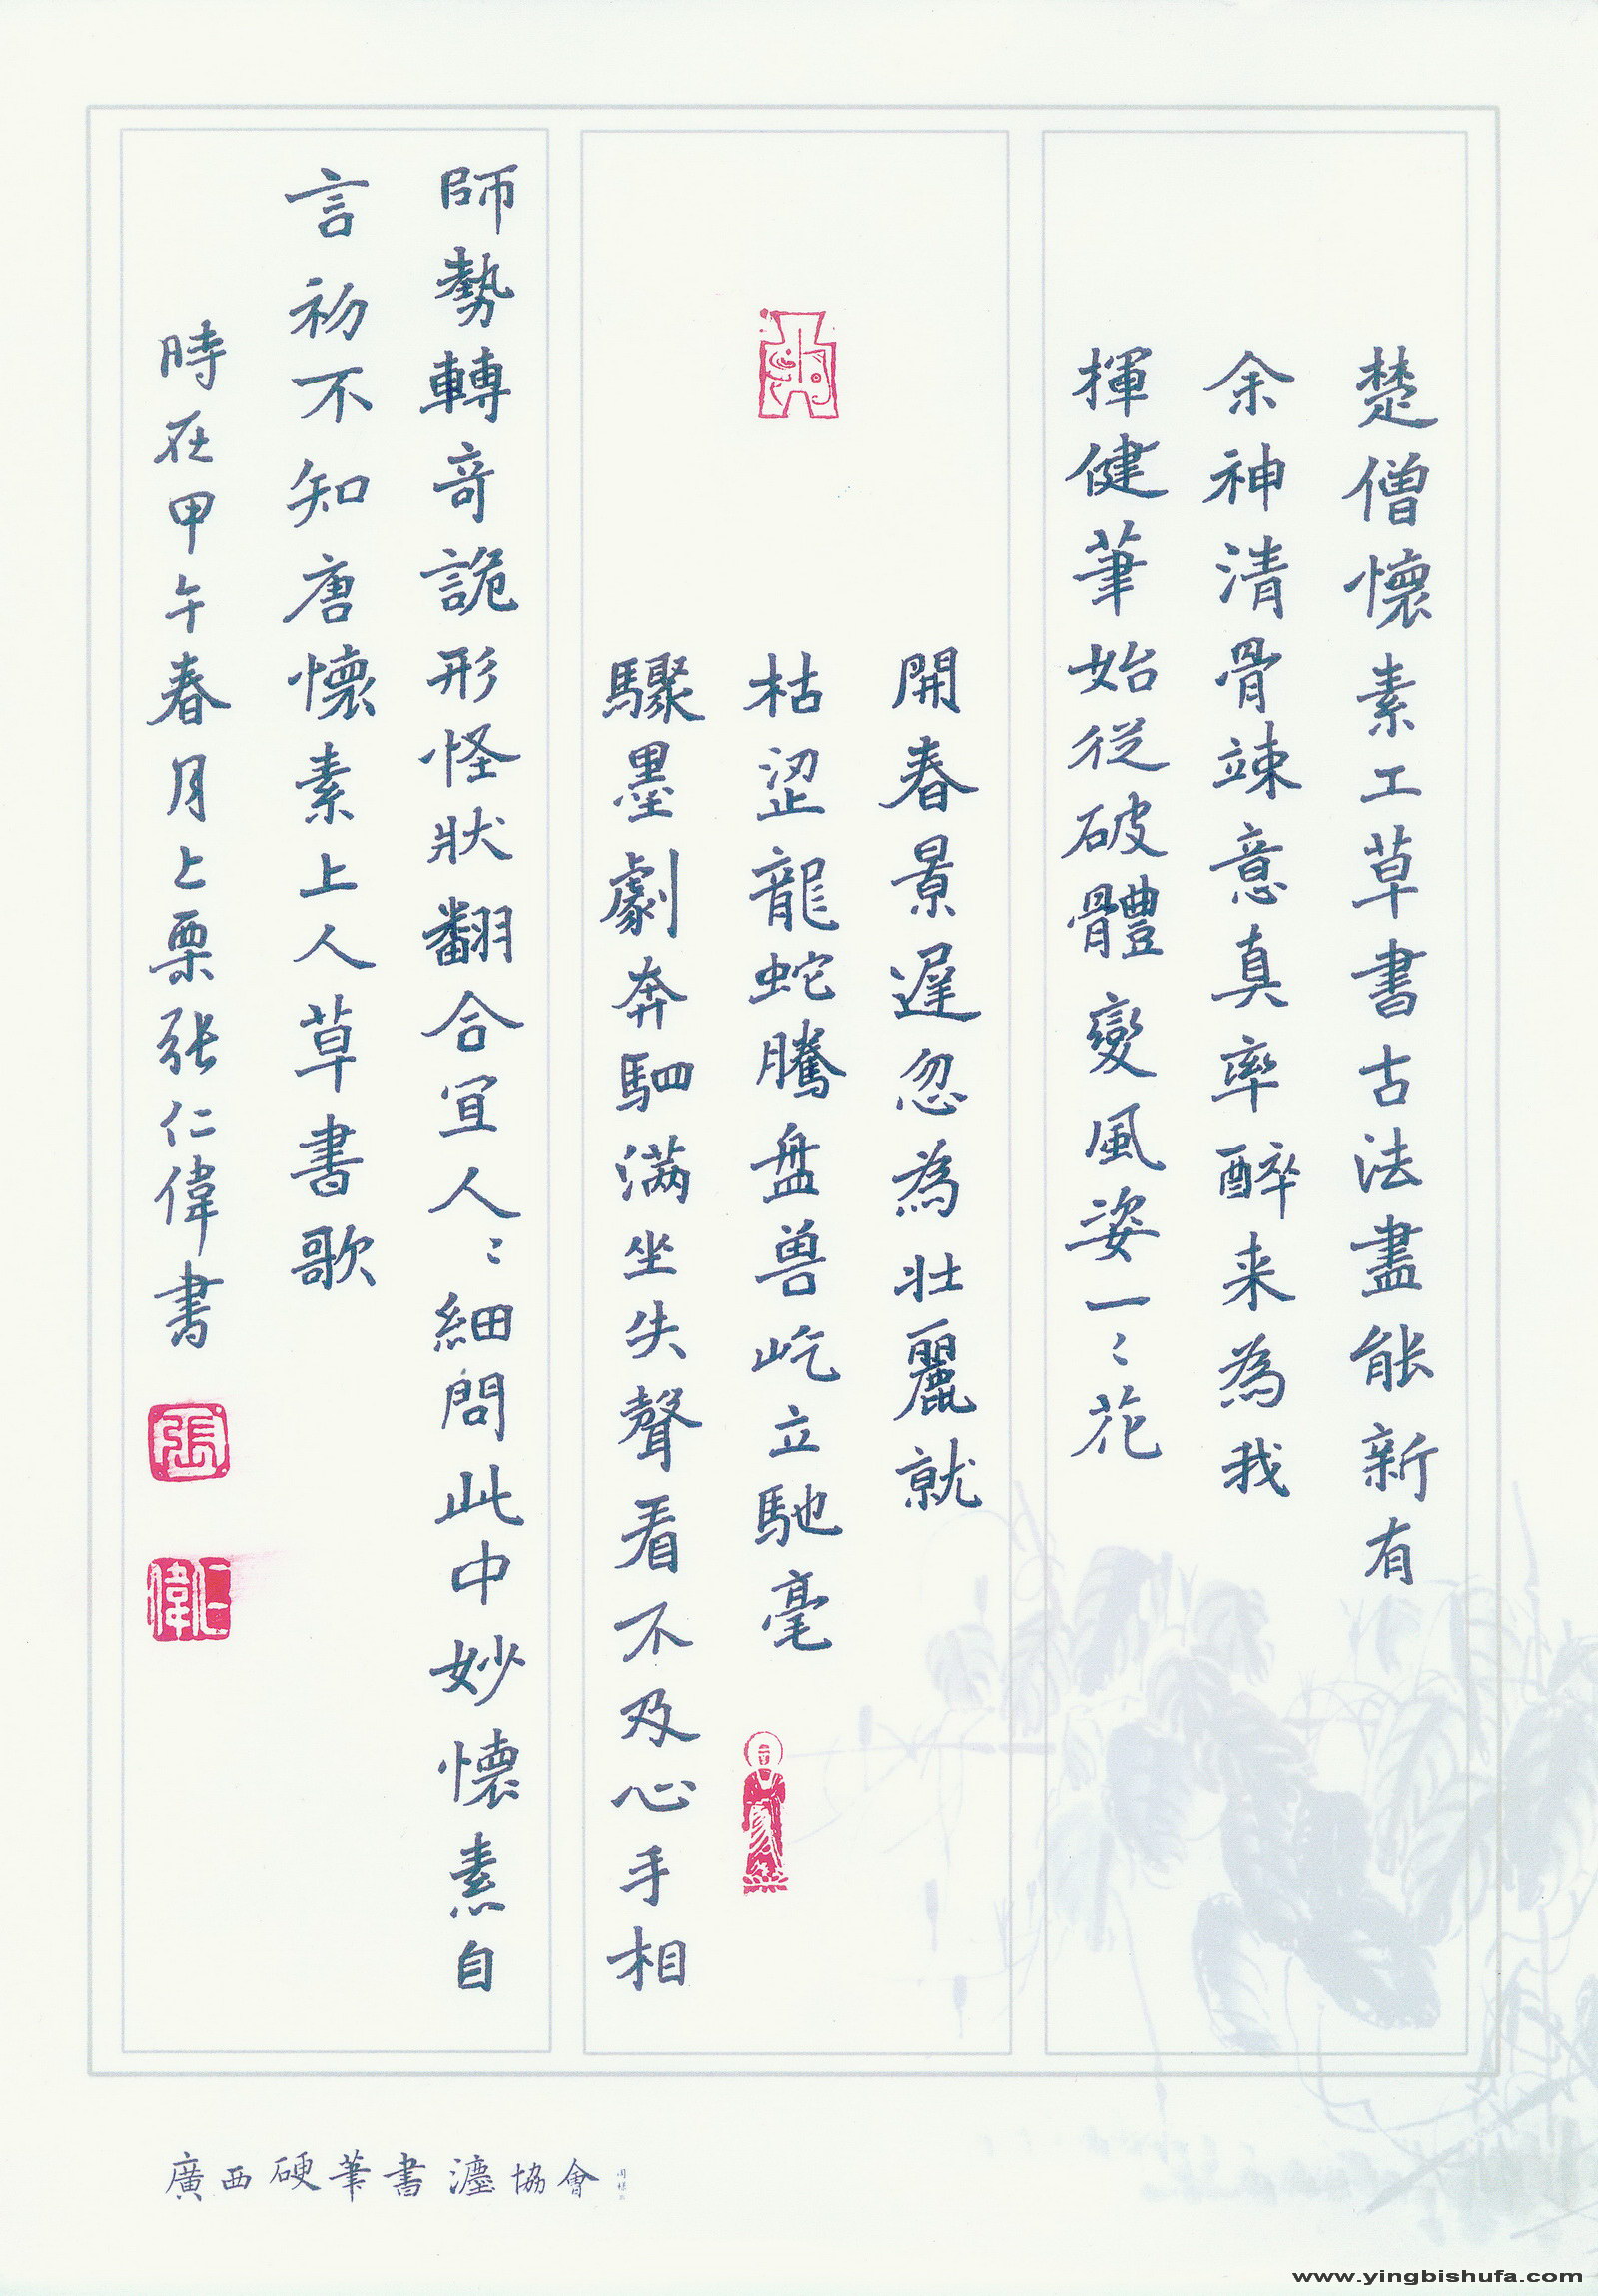 楚僧懷素工草書古法盡能新有
余神清骨竦意真率醉来為我
揮健筆始從破體變風姿一〻花
開春景遲忽為壯麗就
枯涩龍蛇騰盘兽屹立馳毫
驟墨劇奔駟满坐失聲看不及心手相
師勢轉奇詭形怪狀翻合宜人〻細問此中妙懷素自
言初不知唐懷素上人草書歌
時在甲午春月上栗张仁偉書
張
仁偉
廣西硬筆書灋協會
www.yingbishufa.com